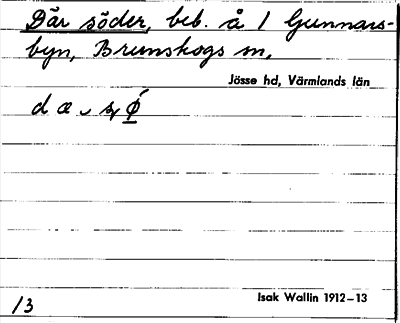 Där söder, beb. å 1 Gunnars-
byn, Brunskogs sn,
Jösse hd, Värmlands län
Isak Wallin 1912–13
13